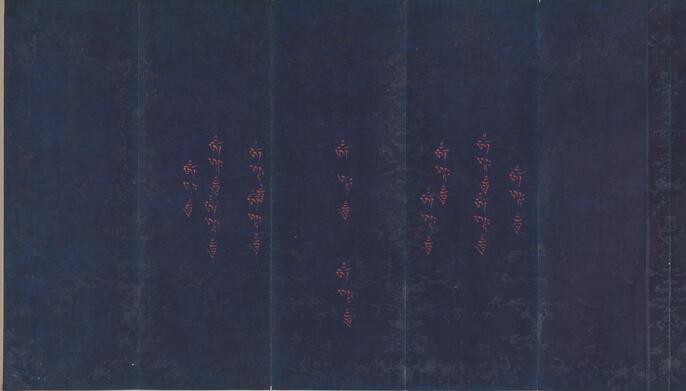 ཨོཾ ཨཱཿ ཧཱུྃ
ཨོཾ ཨཱཿ ཧཱུྃ
ཨོཾ ཨཱཿ ཧཱུྃ
ཨོཾ ཨཱཿ ཧཱུྃ
ཨོཾ ཨཱཿ ཧཱུྃ
ཨོཾ ཨཱཿ ཧཱུྃ
ཨོཾ ཨཱཿ ཧཱུྃ
ཨོཾ ཨཱཿ ཧཱུྃ
ཨོཾ ཨཱཿ ཧཱུྃ
ཨོཾ ཨཱཿ ཧཱུྃ
ཨོཾ ཨཱཿ ཧཱུྃ
ཨོཾ ཨཱཿ ཧཱུྃ